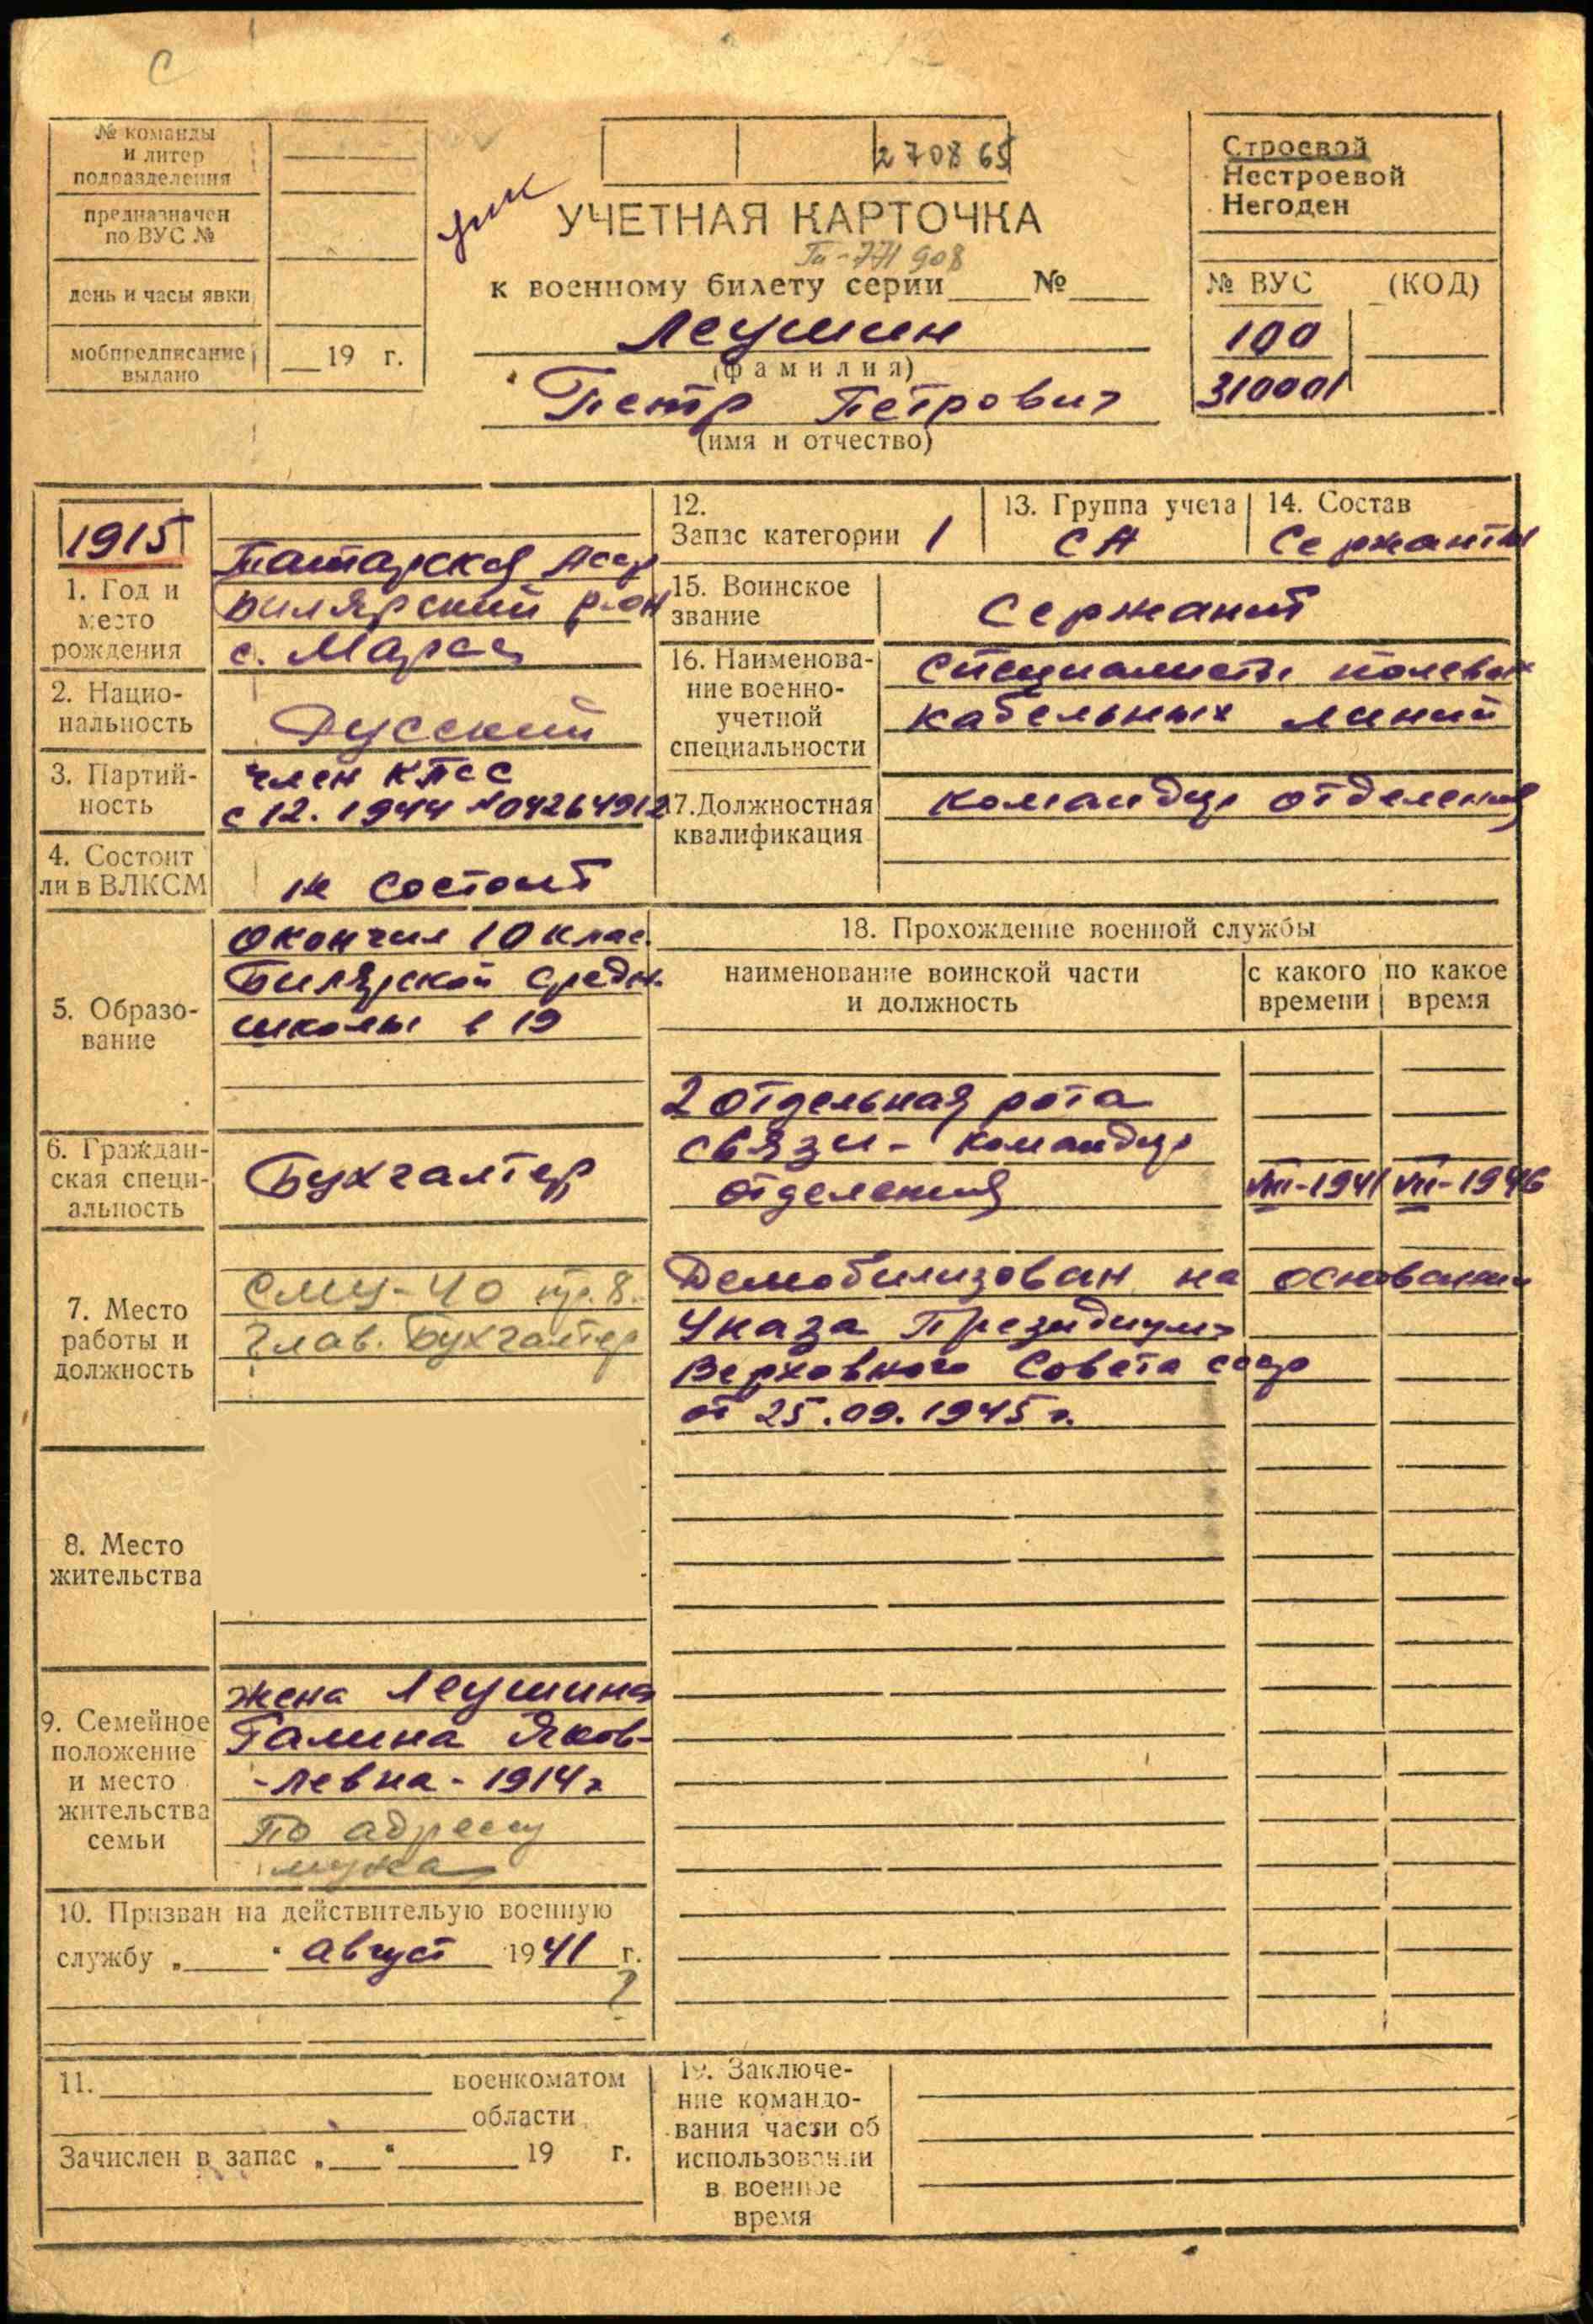 С
№ команды
и литер
подразделения
предназначен
по ВУС №
день и часы явки
мобпредписание
выдано
19 г.
270865
УЧЕТНАЯ КАРТОЧКА
Га-771908
к военному билету серии № 
Леушин
(фамилия)
Петр Петрович
(имя и отчество)
Строевой
Нестроевой
Негоден
№ ВУС (КОД)
100
310001
1915
1. Год и
место
рождения
Татарская Асср
Билярский р-он
с. Мараса
2. Нацио-
нальность
Русский
3. Партий-
ность
член КПСС
с 12.1944 №04264912
4. Состоит
ли в ВЛКСМ
не состоит
5. Образо-
вание
окончил 10 клас.
Билярской средн.
школы в 19
6. Граждан-
ская специ-
альность
Бухгалтер
7. Место
работы и
должность
СМУ-40 пр.8.
Глав. Бухгалтер
8. Место
жительства
9. Семейное
положение
и место
жительства
семьи
жена Леушина
Галина Яков-
-левна-1914г
по адресу
мужа
10. Призван на действительую военную
службу „ “ август 1941 г.
11. военкоматом
области
Зачислен в запас „ “ 19 г.
12.
Запас категории 1
13. Группа учета
СА
14. Состав
Сержанты
15. Воинское
звание
Сержант
16. Наименова-
ние военно-
учетной
специальности
Специалисты полевых
кабельных линий
17. Должностная
квалификация
командир отделения
18. Прохождение военной службы
наименование воинской части
и должность
с какого
времени
по какое
время
2 отдельная рота
связи- командир
отделения VIII-1941 VII-1946
Демобилизован на основании
Указа Президиума
Верховного Совета ссср
от 25.09.1945г.
19. Заключе-
ние командо-
вания части об
использовании
в военное
время